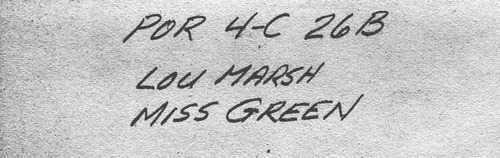 POR 4-C 26B
LOU MARSH
MISS GREEN